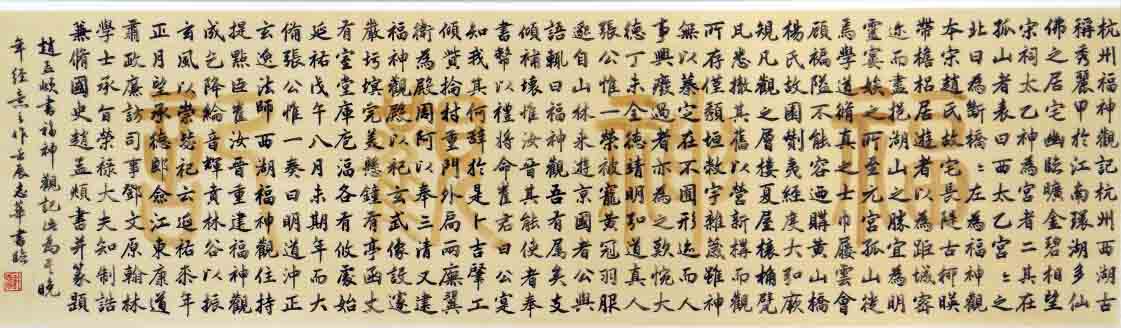 杭州福神觀記杭州西湖古
稱秀麗甲於江南環湖多仙
佛之居宅幽臨曠金碧相望
宋祠太乙神為宮者二其在
孤山者表曰西太乙宮宮之
北曰為斷橋橋左為福神觀
本宋趙氏故宅長隄古柳暎
帶檐柖居遊者以為距城密
迩而盡挹湖山之勝宜為明
靈寞娱之所至元宮孤山徙
馬學道脩真之士巾屨雲會
顧福隘不能容迺購黃山橋
楊氏故園剗夷經度大弘厥
規凡觀之層樓夏屋榱桷甓
且悉撤其舊以營新構而觀
所存僅頽垣敗宇雜葳雖神
無以慕定在不圖形迄而人
事興廢過者亦為之歎惋大
德丁未金德靖明弘道真人
張公惟一榮被寵黃冠羽服
遝自山林来遊京國者公與
語輒曰福神觀吾有屬矣支
傾補壞惟汝晉其能使者奉
書幣以禮將命崔君曰公寔
知我其何辭於是卜吉肇工
傾貲掄材重門外扃兩廡翼
衛為殿周阿以奉三清又建
福神觀殿以祀玄武像設邃
嚴圬墁完美懸鐘有亭函丈
有室堂庫庖湢各有攸處始
延祐戊午八月未期年而大
脩張公惟一奏曰明道沖正
玄逸法師西湖福神觀住持
提點臣崔汝晉重建福神觀
成乞降綸音輝賁林谷以振
玄風以崇慈祀云延祐柒年
正月望承德郎僉江東康道
肅政廉訪司事鄧文原翰林
學士承旨榮禄大夫知制誥
兼脩國史趙孟頫書并篆題
趙孟頫書福神觀記此為其晚
年經意之作壬辰志華書臨